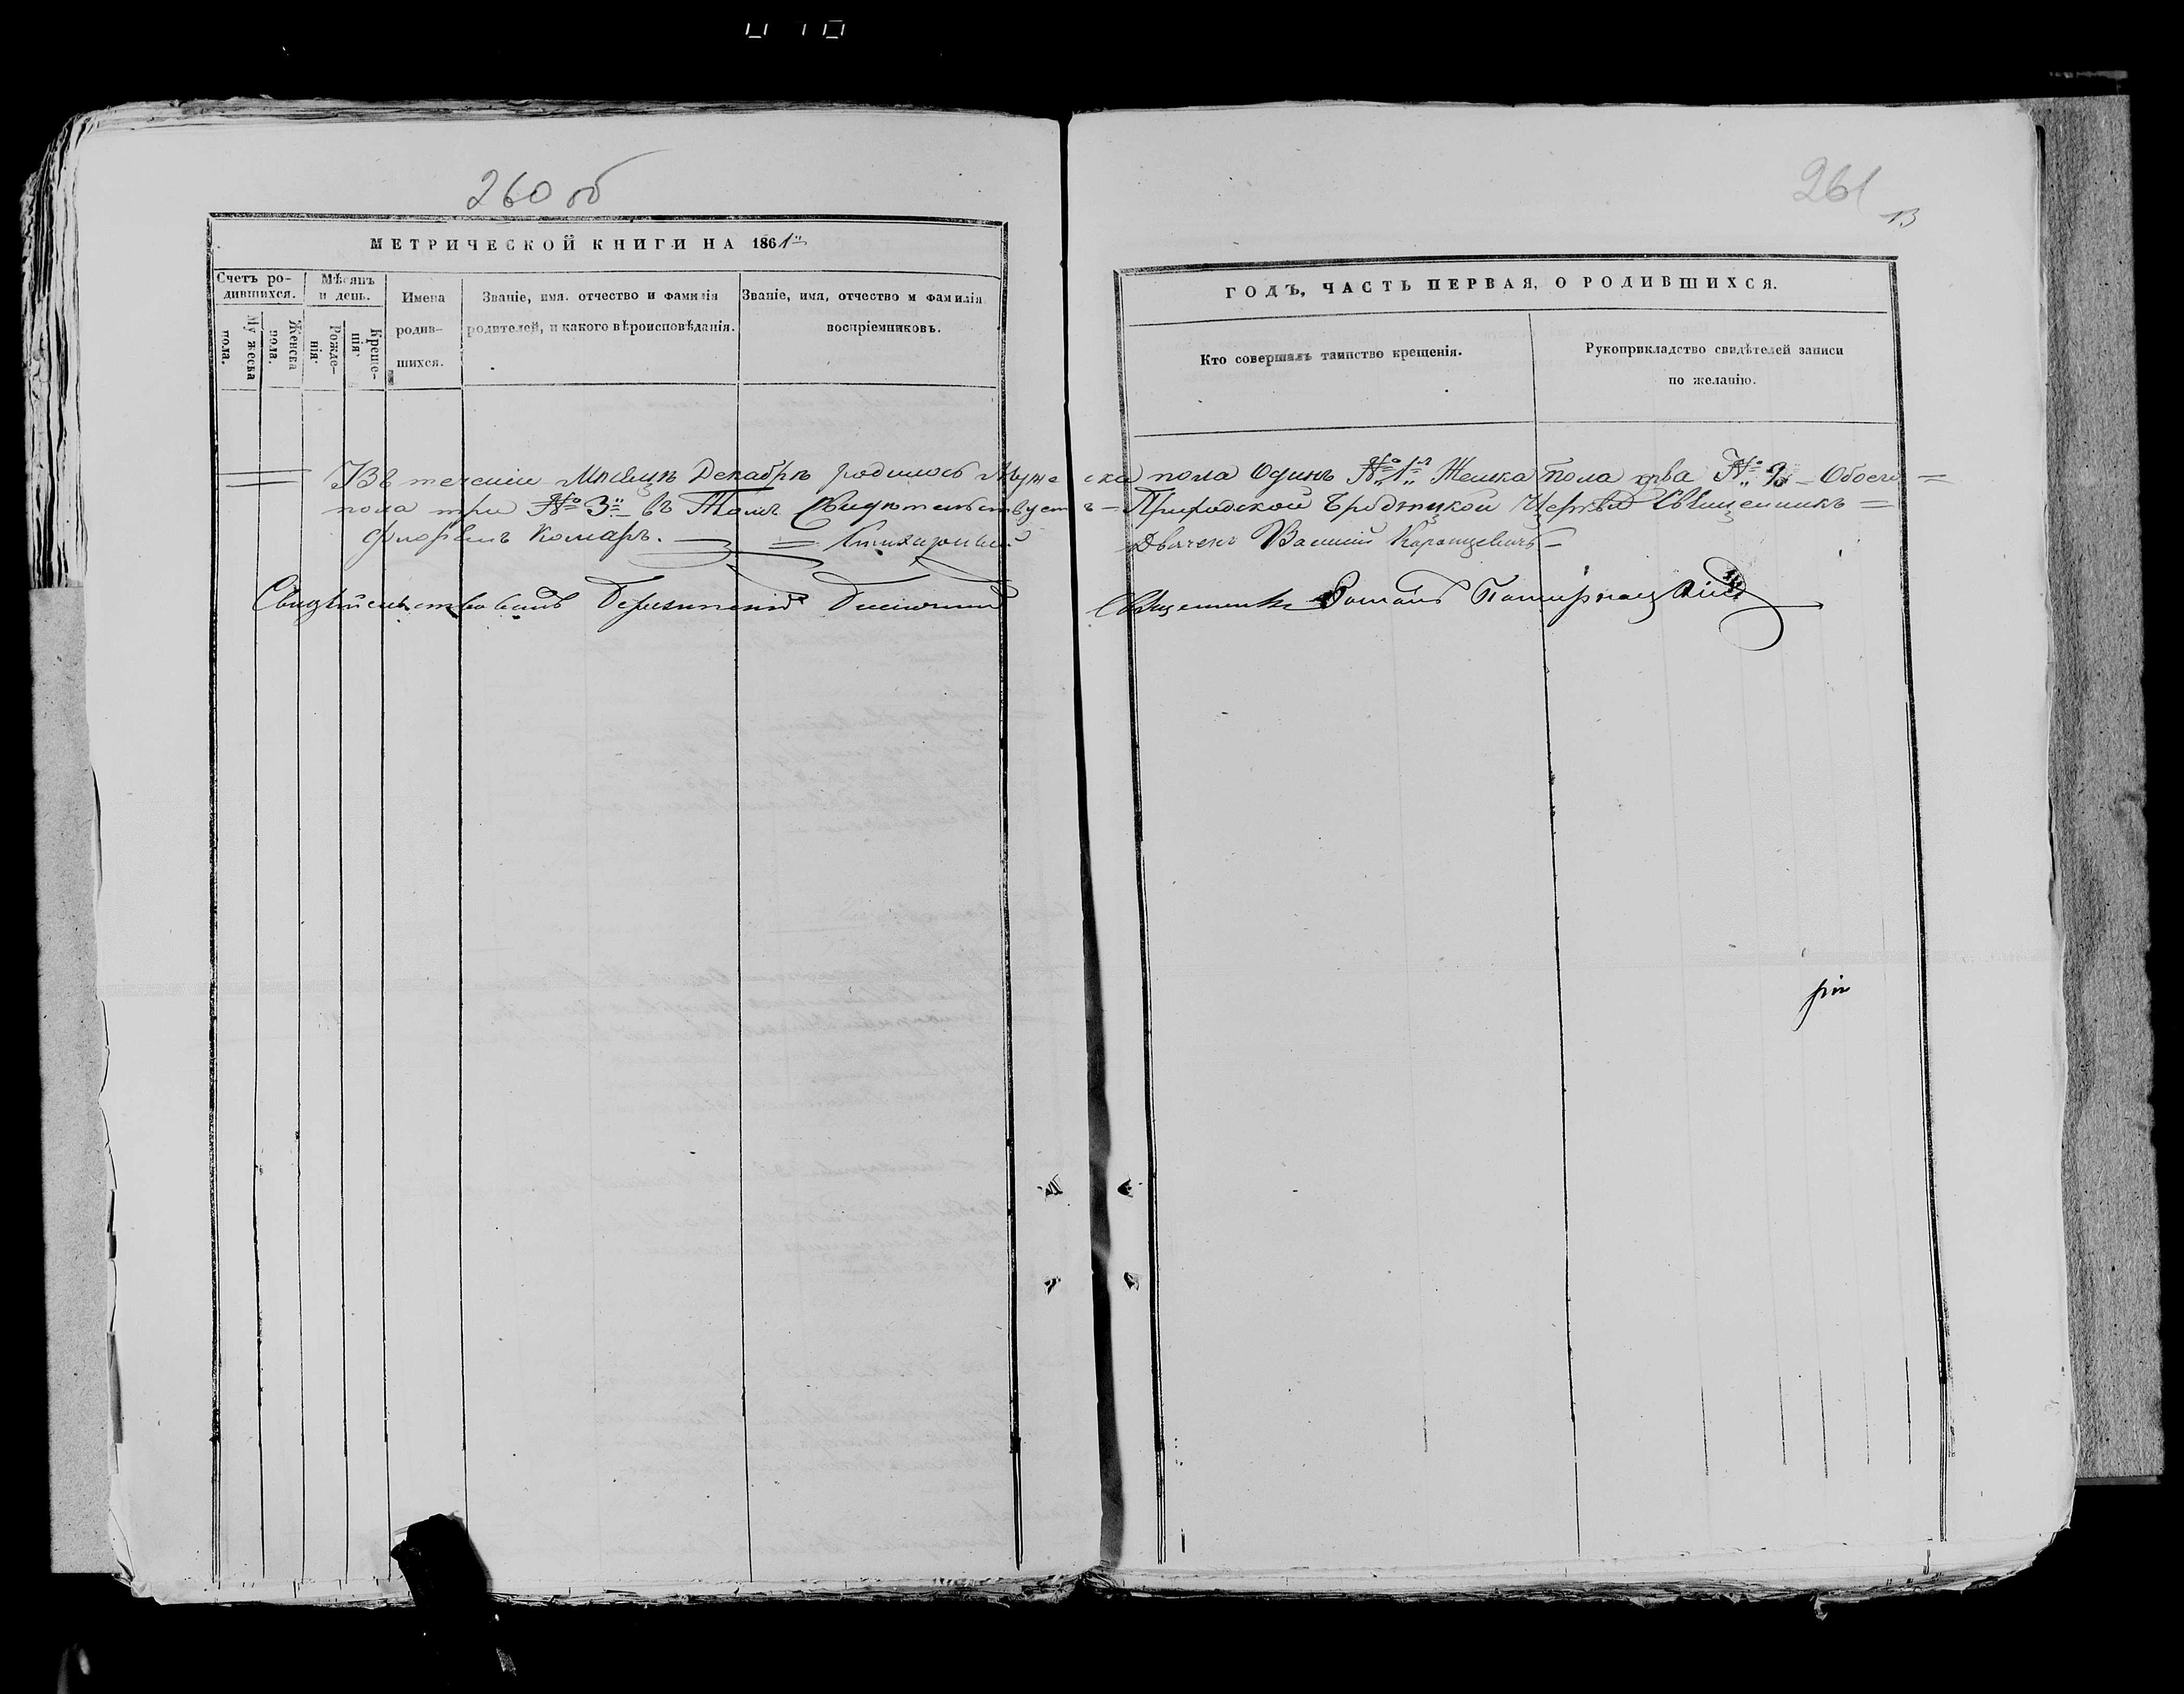 260 об
261
13
МЕТРИЧЕСКОЙ КНИГИ НА 1861
ГОДЪ, ЧАСТЬ ПЕРВАЯ, О РОДИВШИХСЯ.
Счетъ родившихся.
Мужеска пола.
Женска пола.
Мѣсяцъ и день.
Рожденія.
Крещенія.
Имена родившихся.
Званіе, имя, отчество и фамилія
родителей, и какого вѣроисповѣданія.
Званіе, имя, отчество и фамилія
воспріемниковъ.
Кто совершалъ таинство крещенія.
Рукоприкладство свидѣтелей записи
по желанію.
Въ теченіи Мѣсяцѣ Декабрѣ родилось Мужеска пола Одинъ №1 Женска пола два № 2 Обоего
пола три № 3 въ Томъ Свидѣтельствуетъ Приходской Церкви Священникъ
Флоріанъ Комаръ.
Василій
Свидѣтельствовалъ Священникъ